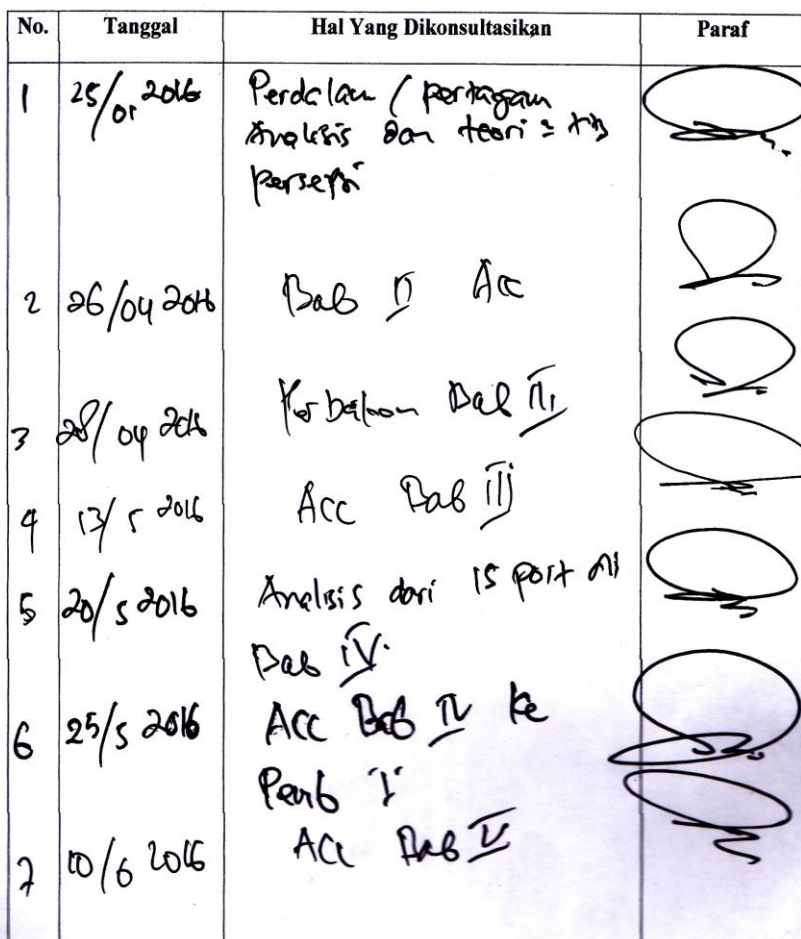 No. Tanggal Hal Yang Dikonsultasikan Paraf
1 25/01 2016 Perdalam / pertajam
Analisis dan teori =
persepsi
2 26/04 2016 Bab II Acc
3 28/04 2016 Bab III
4 13/5 2016 Acc Bab III
5 20/5 2016 Analisis dari 15
Bab IV.
6 25/5 2016 Acc Bab IV Ke
Pemb I
7 10/6 2016 Acc Bab V